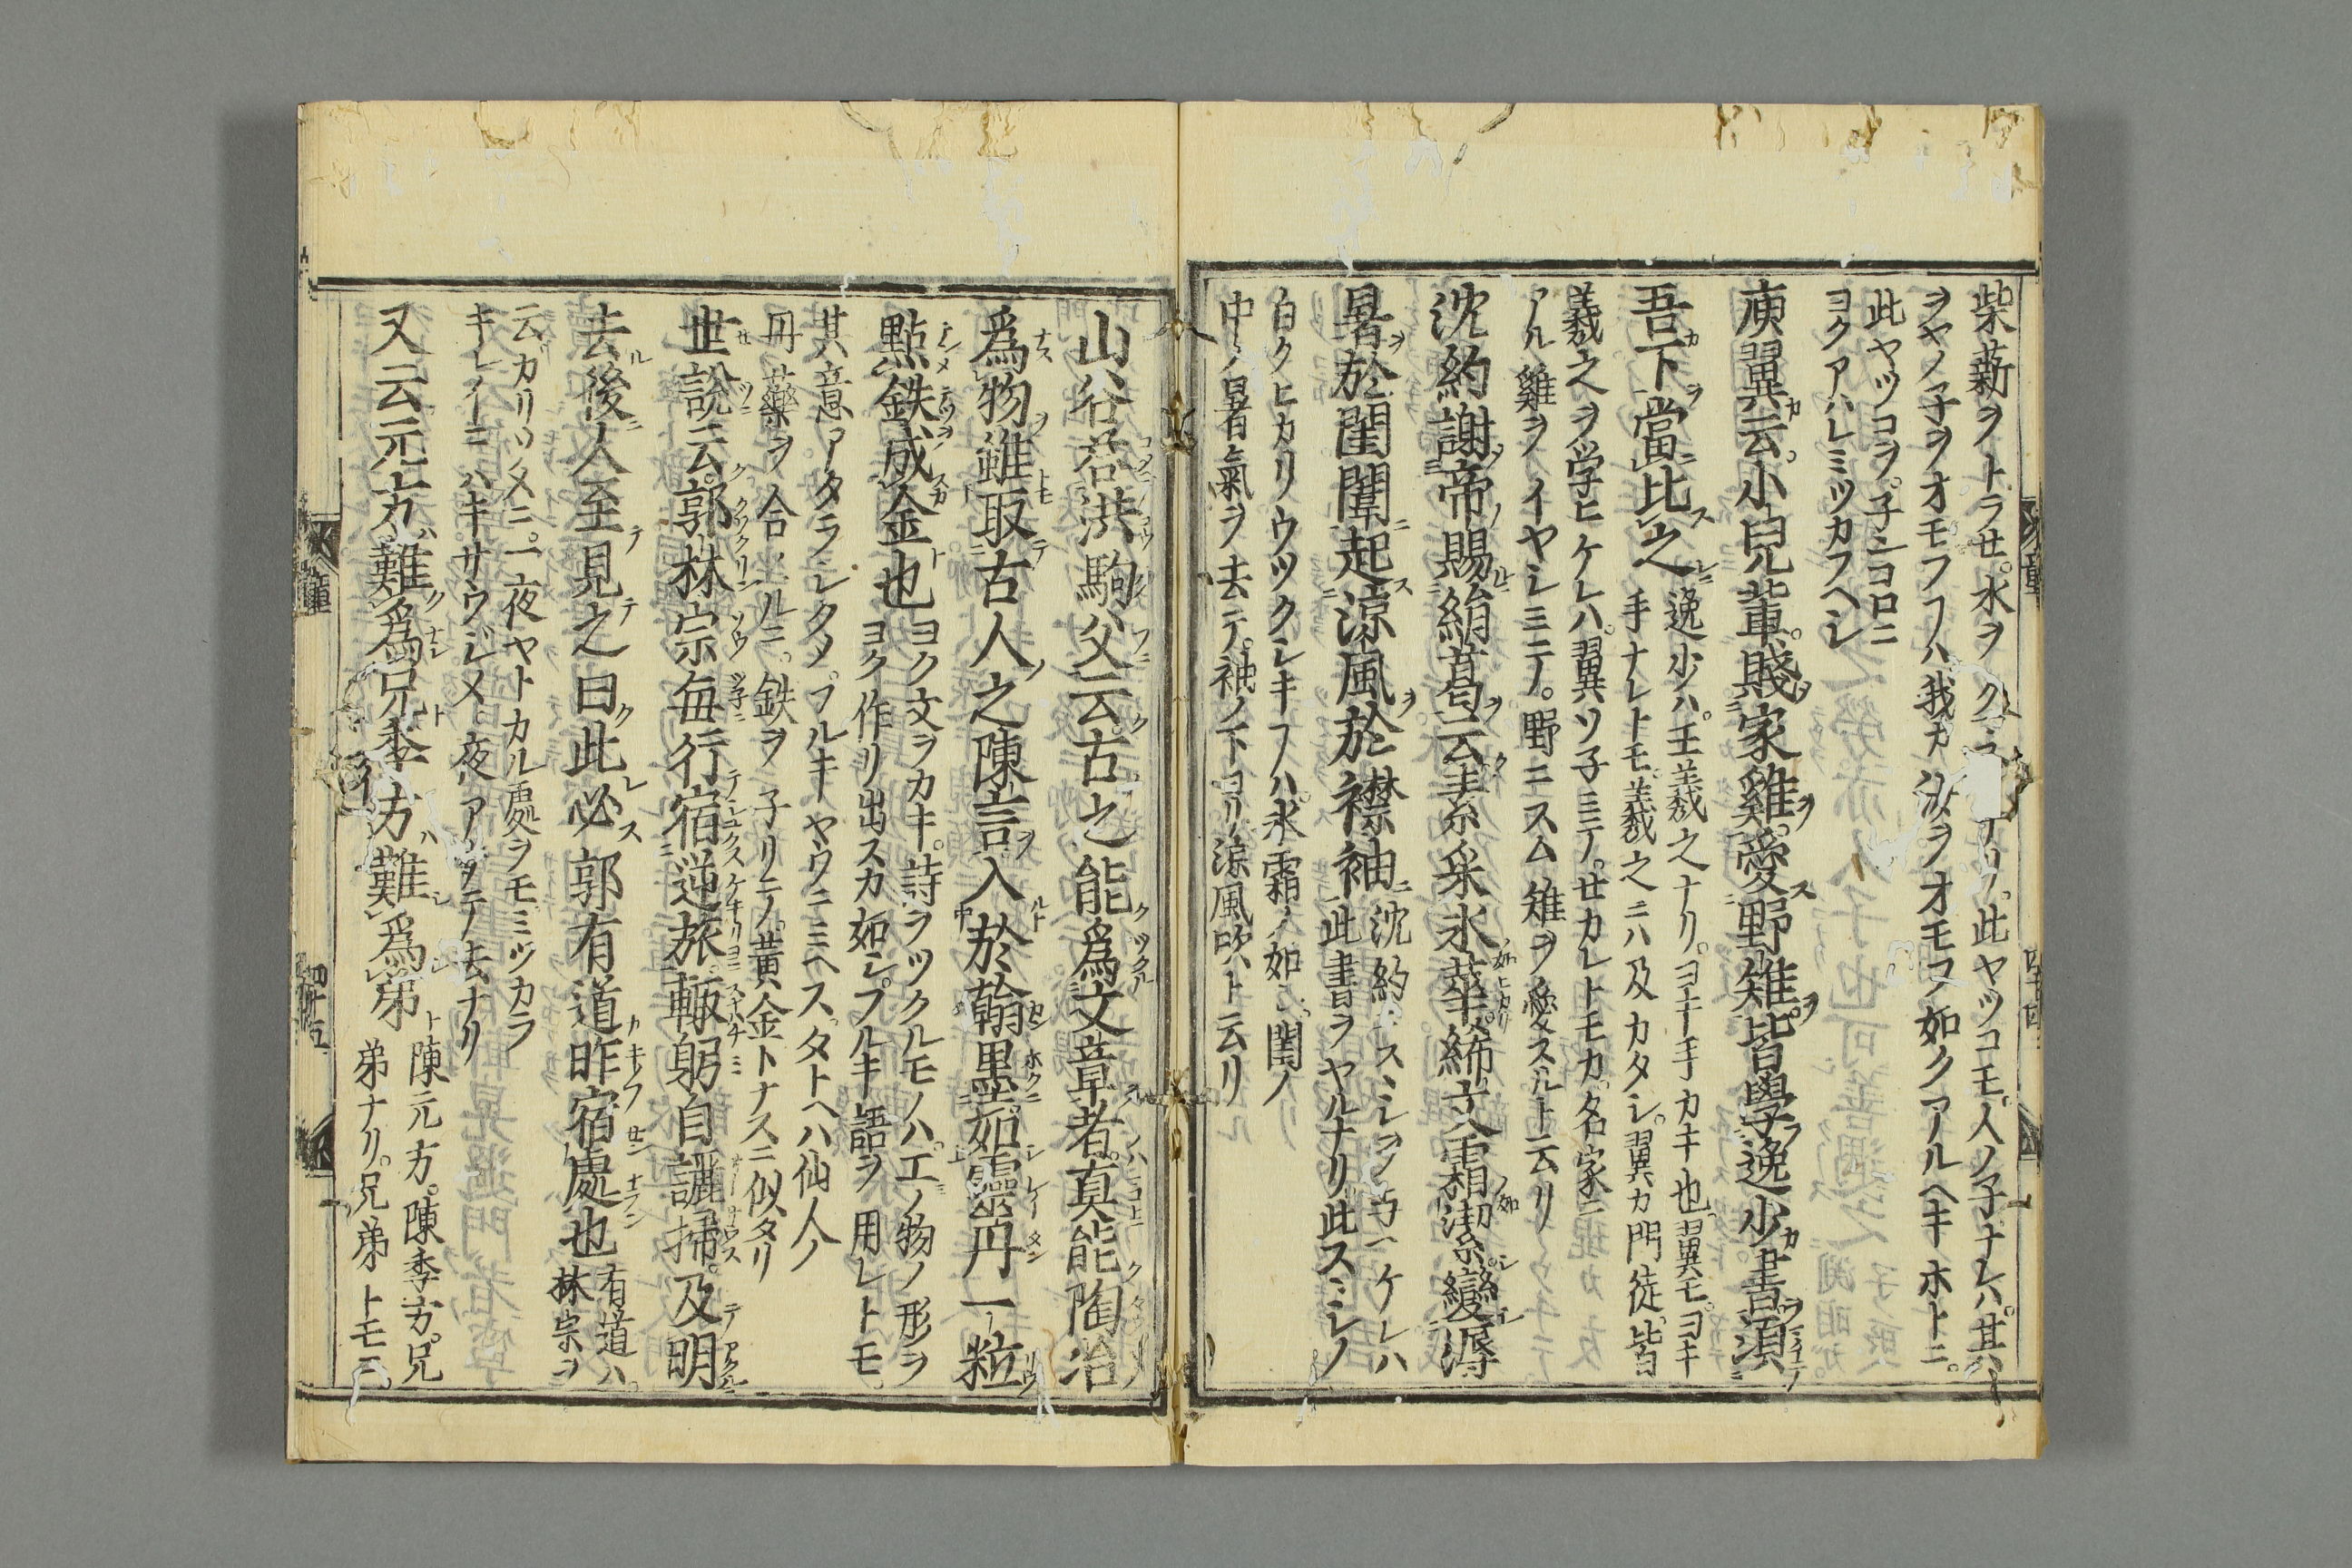 柴薪ヲトラセ。水ヲクマ 此ヤツコモ。人ノ子ナレハ。其ノ
ヲヤノ子ヲオモフフハ我カ汝ヲオモフ如クアルヘキホトニ。
此ヤツコヲ。子ンコロニ
ヨクアハレミツカフヘシ
庾翼云。小兒輩。賤家雞。愛野雉。皆學逸少書。須
吾下當比之
逸少ハ。王羲之ナリ。ヨキ手カキ也。翼モ。ヨキ
手ナレトモ。羲之ニハ及カタシ。翼カ門徒。皆
羲之ヲ学ヒケレハ。翼ソ子ミテ。セカレトモカ。名家ニ
アル雞ヲイヤシミテ。野ニスム雉ヲ愛スルト云リ
沈約謝帝賜絹葛云素采氷華。絺文霜潔。變溽
暑於閨闈起涼風於襟袖
沈約スミシヲ与ヘケレハ
此書ヲヤルナリ此スミシノ
白クヒカリウツクシキフハ。氷霜ノ如シ。閨ノ
中ノ暑氣ヲ去テ。袖ノ下ヨリ涼風吹ト云リ
山谷荅洪駒父云古之能爲文章者。真能陶冶
爲物雖取古人之陳言入於翰墨。如靈丹一粒
點鉄成金也
ヨク文ヲカキ。詩ヲツクルモノハ。工ノ物ノ形ヲ
ヨク作リ出スカ如シ。フルキ語ヲ用レトモ
其意アタラシクメ。フルキヤウニミヘス。タトヘハ仙人ノ
丹藥ヲ合ルニ。鉄ヲ子リテ。黄金トナスニ似タリ
世説云。郭林宗毎行宿逆旅。輙躬自灑掃。及明
去後人至見之曰此必郭有道昨宿處也
有道ハ。
林宗ヲ
云。カリソメニ。一夜ヤトカル處ヲモミツカラ
キレイニハキサウジメ夜アケテ去ナリ
又云元方。難爲兄季方難爲弟
陳元方。陳季方。兄
弟ナリ。兄弟トモニ。